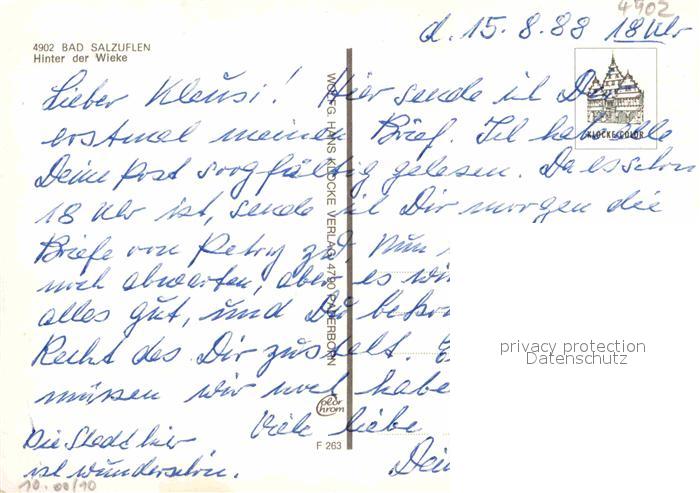 4902
d. 15. 8. 88 18 Uhr
4902 BAD SALZUFLEN
Hinter der Wieke
Lieber Klausi! Hier sende ich Dir
erstmal meinen Brief. Ich habe alle
Deine Post sorgfältig gelesen. Da es schon
18 Uhr ist, sende ich Dir morgen die
Briefe von Petry zu. Nun
noch abwarten, aber es wir
alles gut, und Du bekom
Recht das Dir zustelt.
müssen wir noch habe
Viele liebe
Dein
Die Stadt hier
ist wunderschön.
WOLFG. HANS KLOCKE VERLAG 4790 PADERBORN
KLOCKE-COLOR
Color chrom
F 263
privacy protection
Datenschutz
10.00/10